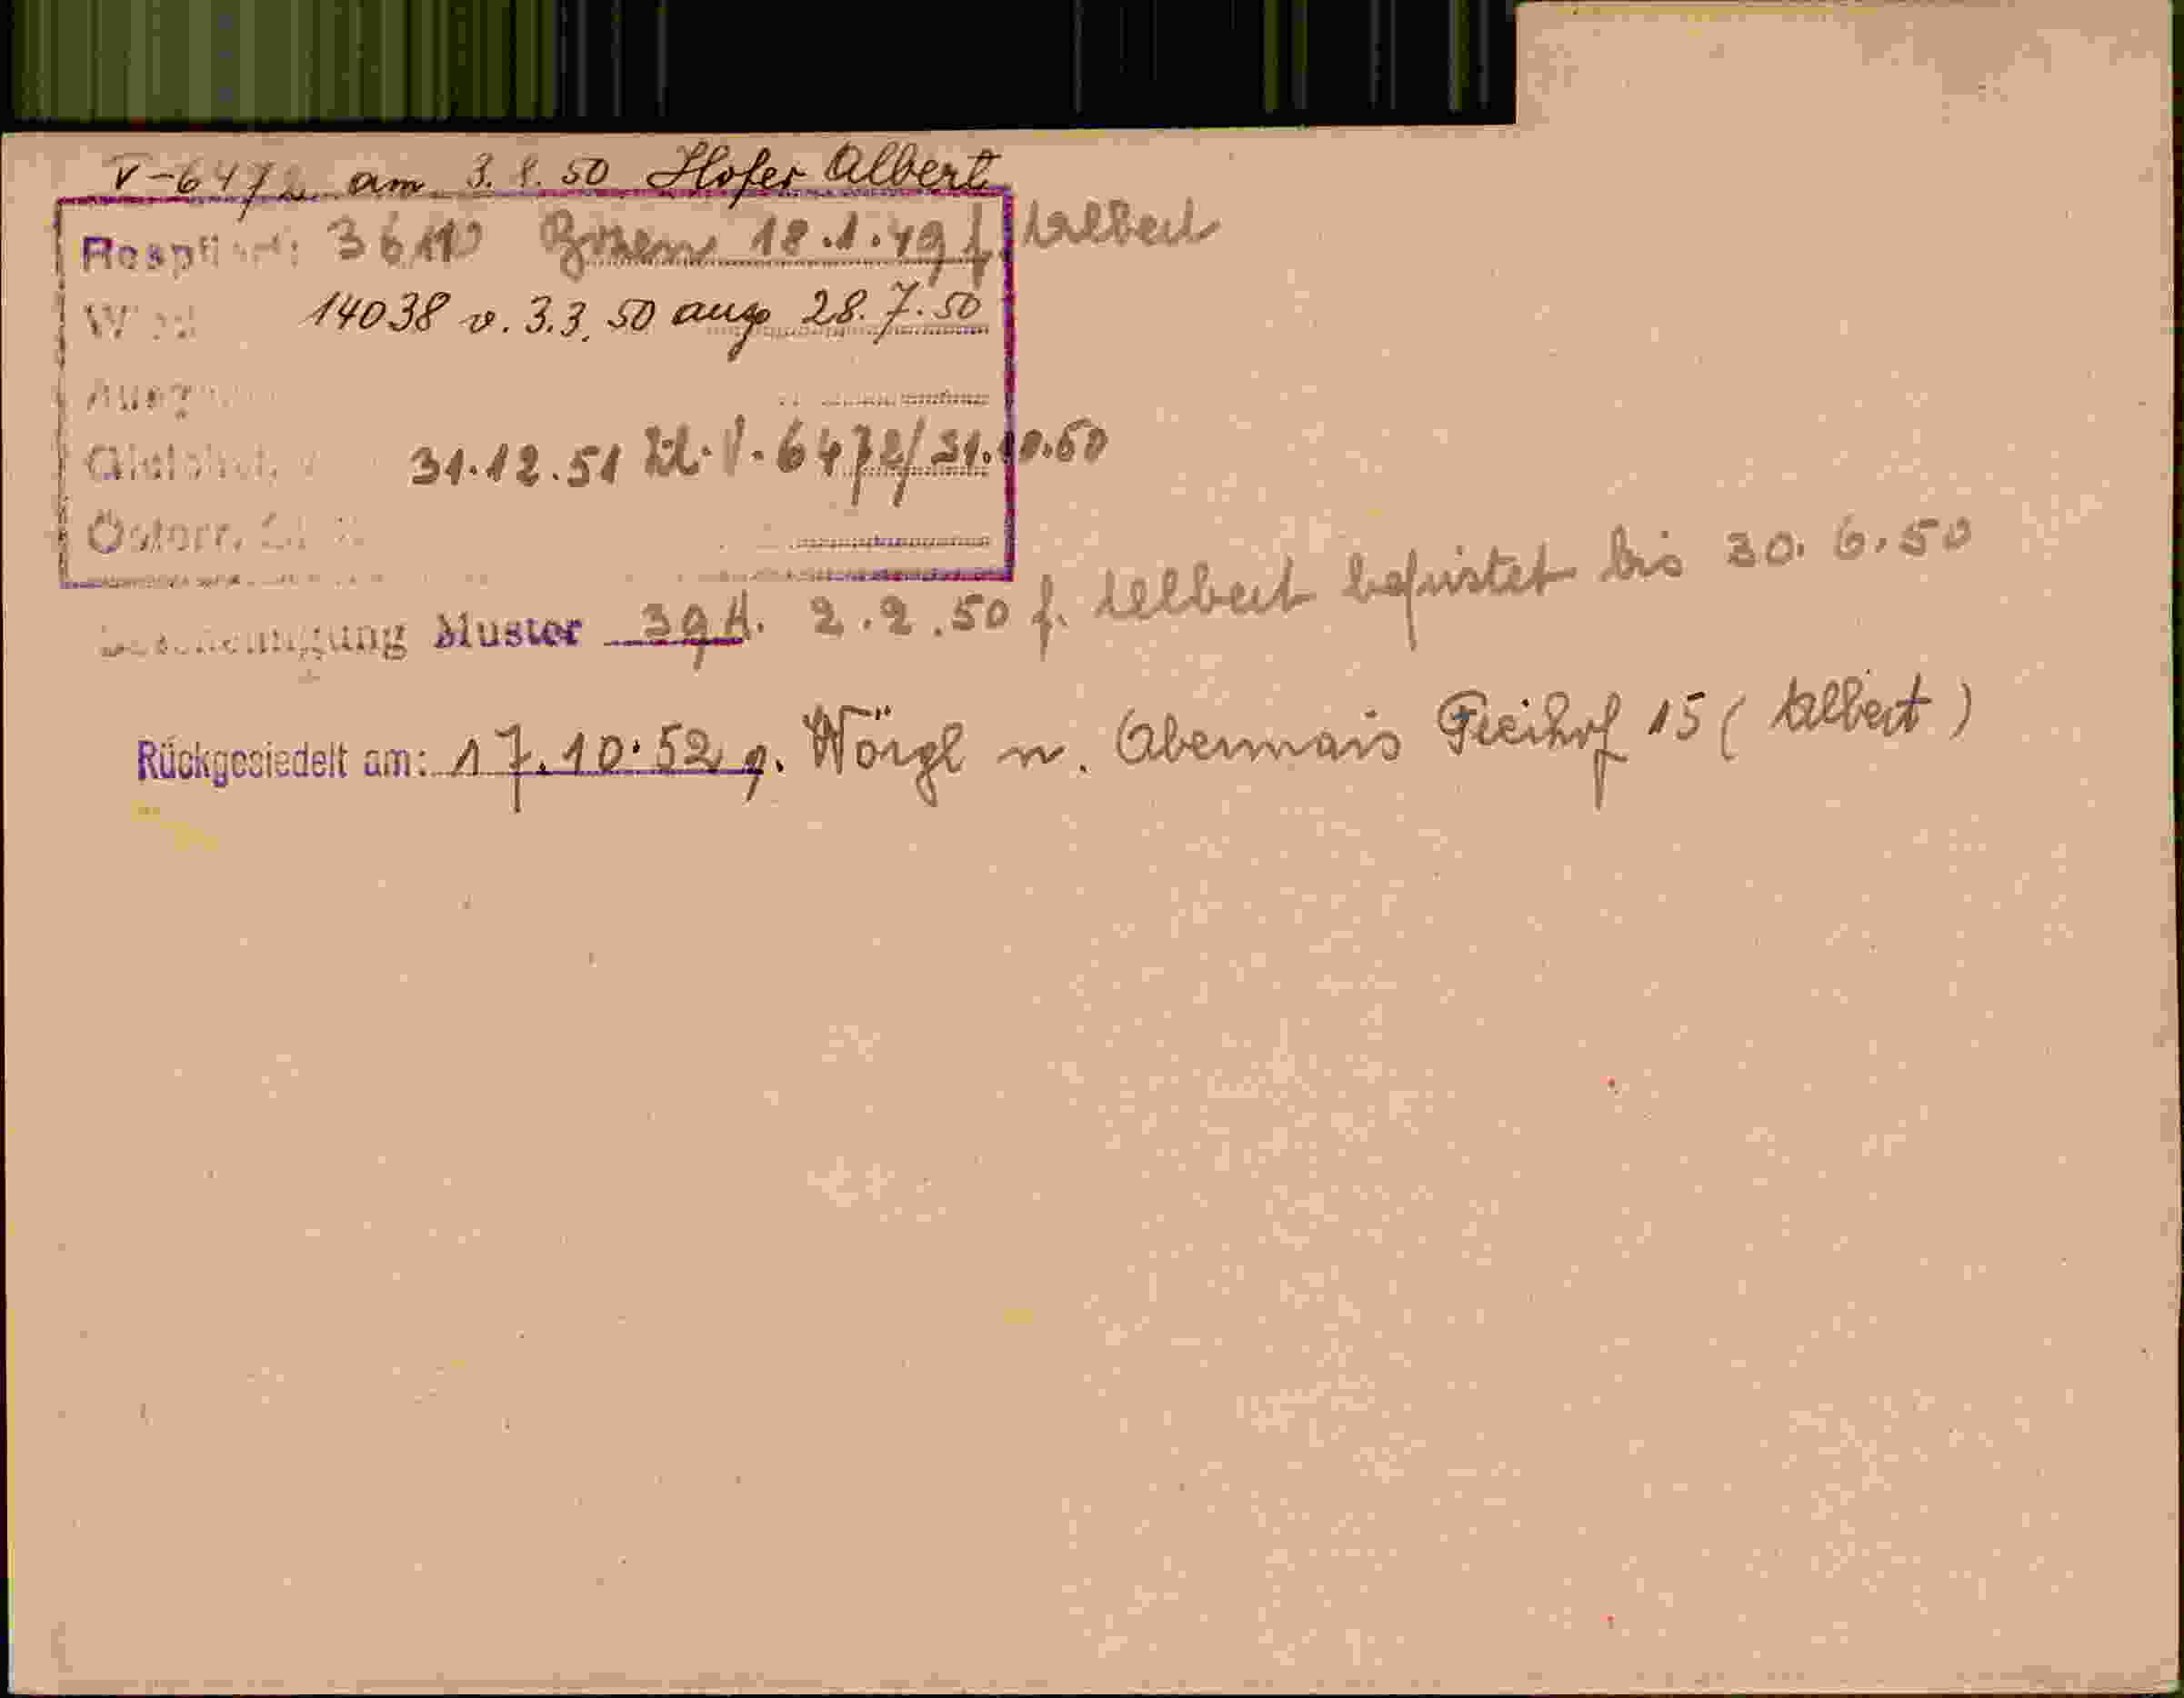 V-6472 am 3.8.50 Hofer Albert
36110 Bozen 18.1.49 f. Albert
14038 v. 3.3.50 ausg 28.7.50
31.12.51 Zl. V. 6472/31.10.50
Österr.
Bescheinigung Muster 39A. 2.2.50 f. Albert befristet bis 30.6.50
Rückgesiedelt am: 17.10.52 g. Wörgl n. Obermais Freihof 15 (Albert)